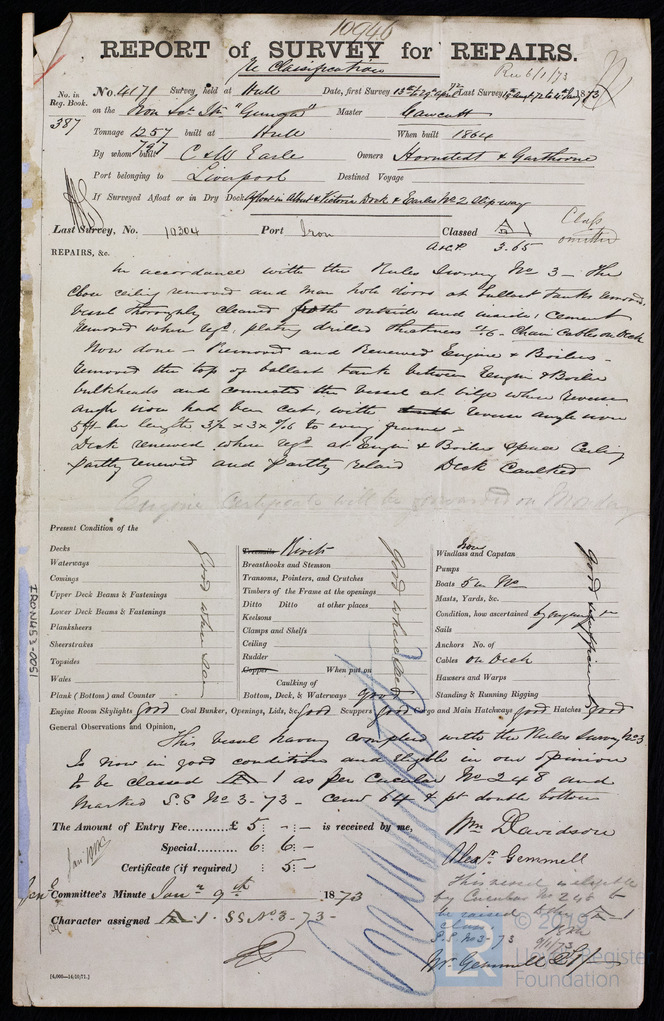 10946
REPORT of SURVEY for REPAIRS.
Re Classification
Rec 6/1/73
No. in Reg. Book. No. 4171 Survey held at Hull Date, first Survey 13th to 29th April 72 Last Survey 1873
387 on the Iron Str "Gunga" Master Fawcett
Tonnage 1257 built at Hull When built 1864
797
By whom built C & W Earle Owners Hornstedt & Garthorne
Port belonging to Liverpool Destined Voyage
If Surveyed Afloat or in Dry Dock Afloat in Albert & Victoria Dock & Earles No 2 slipway
Last Survey, No. 10304 Port Iron Classed A 1
A & C P 3.65
Class omitted
REPAIRS, &c.
In accordance with the Rules Survey No 3 — The
close ceiling removed and man hole doors at ballast tanks removed,
vessel thoroughly cleaned both outside and inside, cement
removed where reqd, plating drilled thickness Chain Cables on Deck
Now done — Removed and Renewed Engine & Boilers —
removed the top of ballast tank between Engine & Boiler
bulkheads and connected the vessel at bilge where reverse
angle iron had been cut, with reverse angle iron
5 ft in length 3½ x 3 x 7/16 to every frame —
Deck renewed where reqd at Engine & Boiler space Ceiling
partly renewed and partly relaid Deck Caulked
Engine Certificate will be forwarded on Monday
Present Condition of the
Decks
Waterways
Comings
Upper Deck Beams & Fastenings
Lower Deck Beams & Fastenings
Planksheers
Sheerstrakes
Topsides
Wales
Plank (Bottom) and Counter
Good where seen
Treenails Rivets
Breasthooks and Stemson
Transoms, Pointers, and Crutches
Timbers of the Frame at the openings
Ditto Ditto at other places
Keelsons
Clamps and Shelfs
Ceiling
Rudder
Copper When put on
Caulking of
Bottom, Deck, & Waterways good
Good where seen
Iron
Windlass and Capstan
Pumps
Boats 5 in No
Masts, Yards, &c.
Condition, how ascertained by
Sails
Anchors No. of
Cables on Deck
Hawsers and Warps
Standing & Running Rigging
Good & sufficient
Engine Room Skylights Good Coal Bunker, Openings, Lids, &c. Good Scuppers good Cargo and Main Hatchways good Hatches good
General Observations and Opinion,
This vessel having complied with the Rules Survey No 3
Is now in good condition and eligible in our opinion
to be classed A 1 as per Circular No 248 and
marked S.S No 3-73 — Cem 64 & pt double bottom
The Amount of Entry Fee..........£ 5 : - : — is received by me,
Special.......... 6 : 6 : —
Certificate (if required) : 5 : —
Wm Davidson
Alexr. Gemmell
Committee's Minute Jany 9th 1873
Character assigned A 1. SS No 3-73-
This vessel is eligible
by Circular No 248 to
be raised A 1
class
S.S No 3-73
9/1/73
Mr. Gemmell
[4,000—14/10/71.]
IRON453-0051
© 2019
Lloyd's Register
Foundation